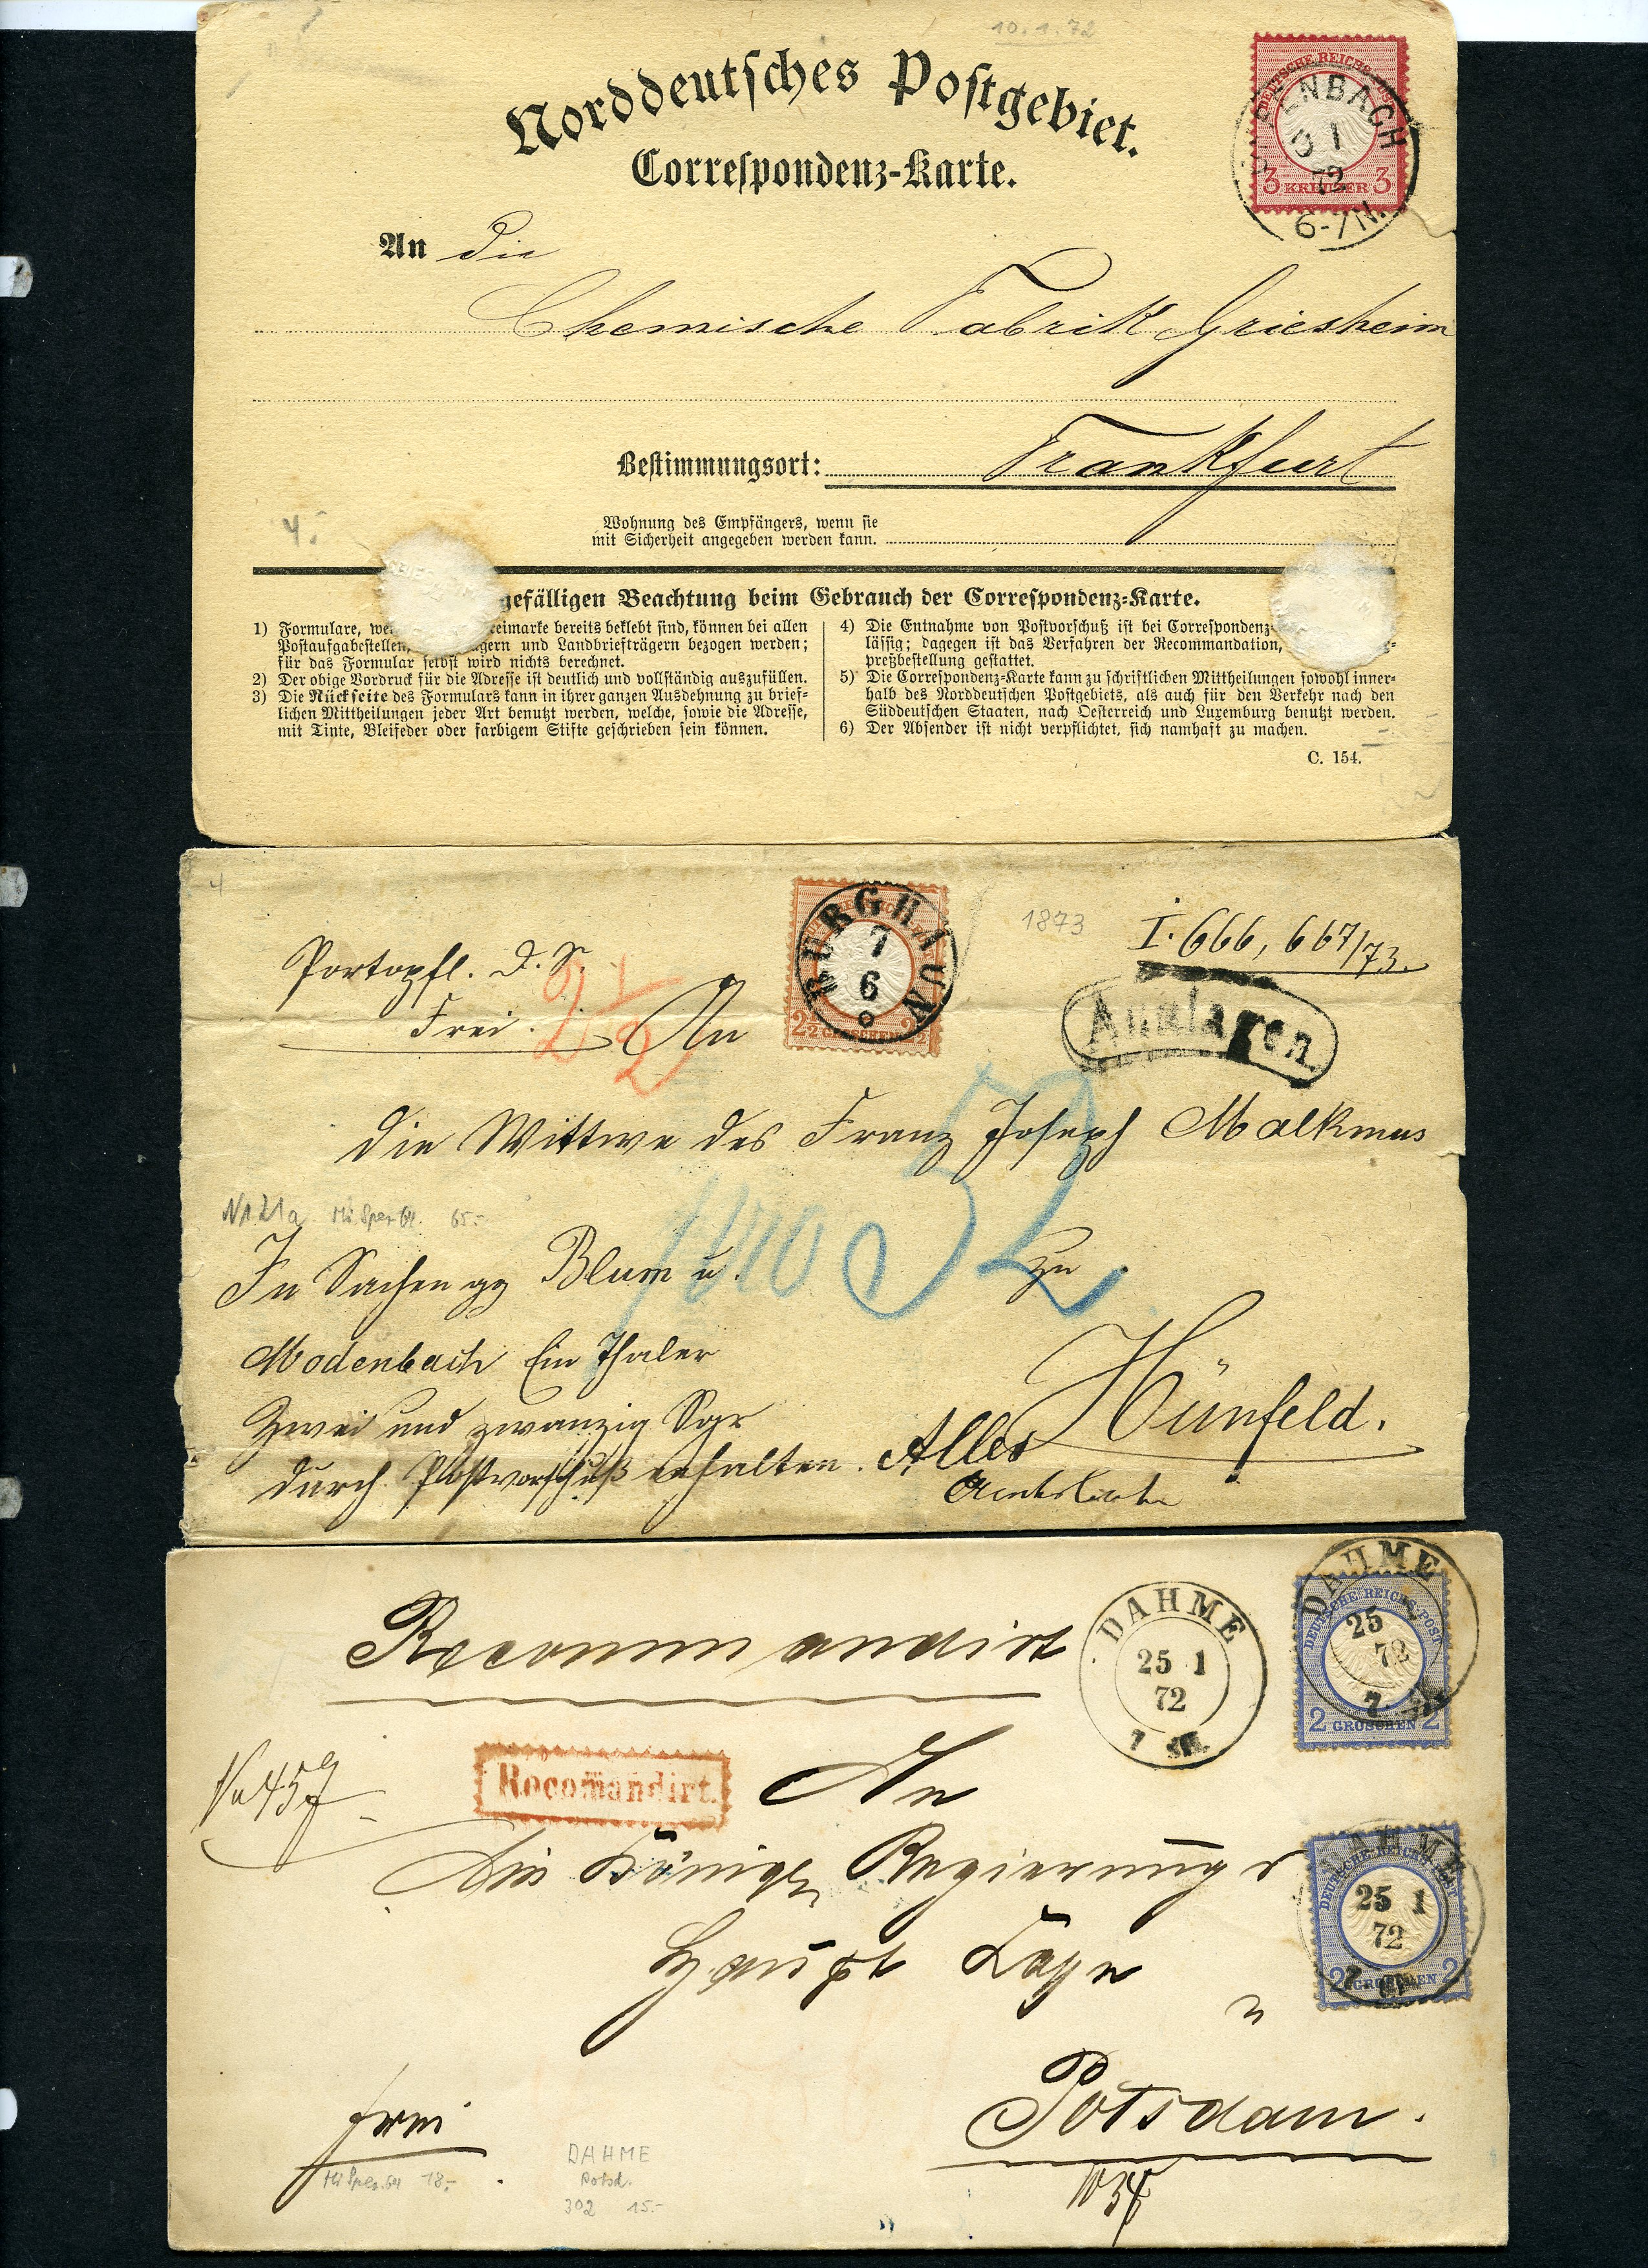 10.1.72
Norddeutsches Postgebiet.
Correspondenz-Karte.
DEUTSCHE REICHS-POST
3 KREUZER 3
ENBACH
1
72
6-7 N.
An die
Chemische Fabrik Griesheim
Bestimmungsort: Frankfurt
Wohnung des Empfängers, wenn sie
mit Sicherheit angegeben werden kann.
4.-
gefälligen Beachtung beim Gebrauch der Correspondenz-Karte.
1) Formulare, we eimarke bereits beklebt sind, können bei allen
Postaufgabestellen, gern und Landbriefträgern bezogen werden;
für das Formular selbst wird nichts berechnet.
2) Der obige Vordruck für die Adresse ist deutlich und vollständig auszufüllen.
3) Die Rückseite des Formulars kann in ihrer ganzen Ausdehnung zu brief-
lichen Mittheilungen jeder Art benutzt werden, welche, sowie die Adresse,
mit Tinte, Bleifeder oder farbigem Stifte geschrieben sein können.
4) Die Entnahme von Postvorschuß ist bei Correspondenz-
lässig; dagegen ist das Verfahren der Recommandation,
preßbestellung gestattet.
5) Die Correspondenz-Karte kann zu schriftlichen Mittheilungen sowohl inner-
halb des Norddeutschen Postgebiets, als auch für den Verkehr nach den
Süddeutschen Staaten, nach Oesterreich und Luxemburg benutzt werden.
6) Der Absender ist nicht verpflichtet, sich namhaft zu machen.
C. 154.
4
Portopfl. D. S.
Frei.
2 1/2
An
BURGHAUN
7
6
2½ GROSCHEN 2½
1873
I. 666, 667/73.
Auslagen.
die Wittwe des Franz Joseph Malkmus
52
65.-
In Sachen gg Blum u.
zu
Modenbach Ein Thaler
Zwei und zwanzig Sgr
Hünfeld.
durch Postvorschuß erhalten. Alles
Recommandirt
DAHME
25 1
72
DAHME
25
72
DEUTSCHE REICHS-POST
2 GROSCHEN 2
Recomandirt.
An
Die Königl. Regierungs
Haupt Casse
DAHME
25 1
72
DEUTSCHE REICHS-POST
2 GROSCHEN 2
Potsdam.
frei
18.-
DAHME
Potsd.
302 15.-